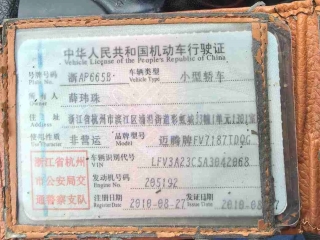 中华人民共和国机动车行驶证
Vehicle License of the People's Republic of China
号牌号码 浙AP665B 车辆类型 小型轿车
Plate No. Vehicle Type
所有人 薛玮珠
住址 浙江省杭州市滨江区浦沿街道
Address
使用性质 非营运 品牌型号 迈腾牌FV7187TDQG
Model
浙江省杭州 车辆识别代号 LFV3A23C5A3042068
VIN
市公安局交 发动机号码 205192
Engine No.
通警察支队 注册日期 2010-08-27 发证日期 2010-08-27
Register Date Issue Date